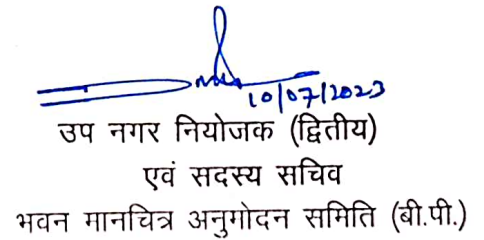 10/07/2023
उप नगर नियोजक (द्वितीय)
एवं सदस्य सचिव
भवन मानचित्र अनुमोदन समिति (बी.पी.)